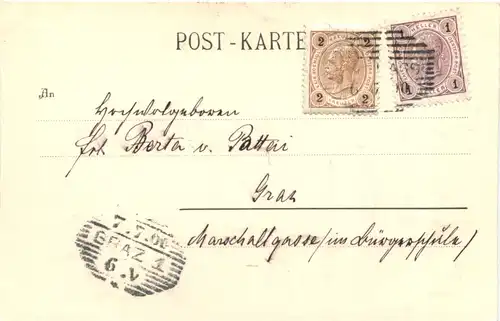 POST-KARTE
2 HELLER 2
2 2
1 HELLER 1
1 1
An
Hochwolgeboren
Frl Berta v. Pattai
Graz
Marschallgasse/im Bürgerschule/
7.7.00
GRAZ 1
6.V